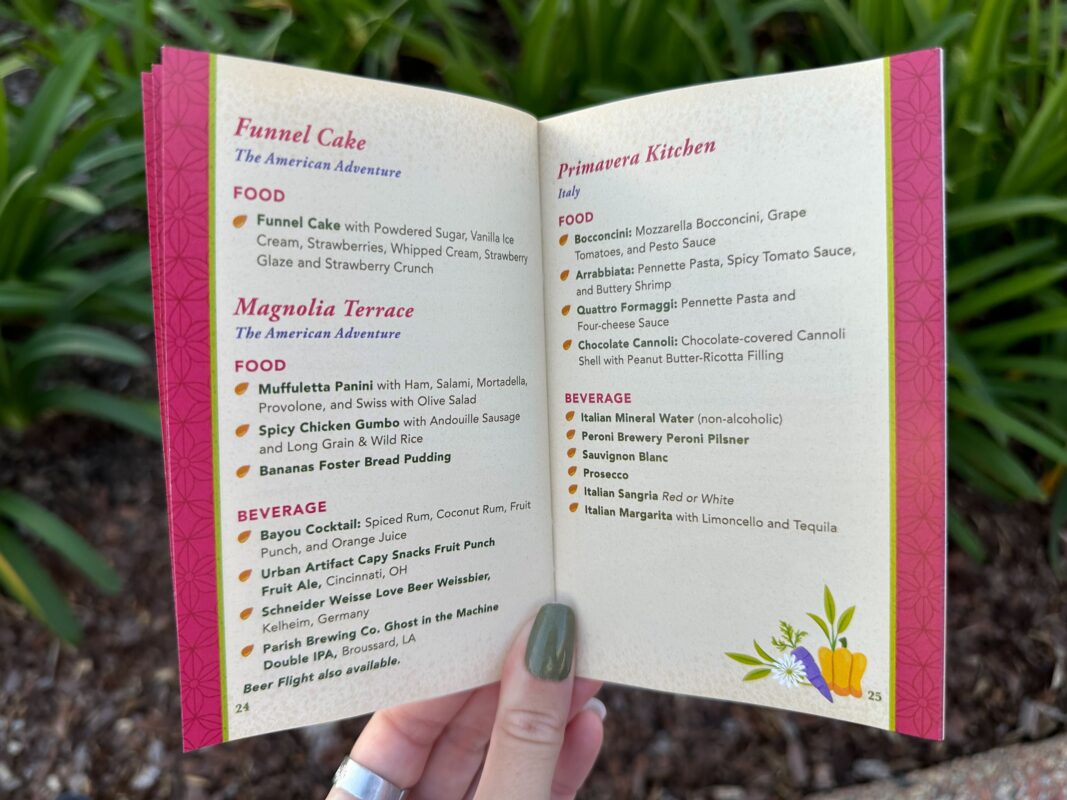 Funnel Cake
The American Adventure
FOOD
Funnel Cake with Powdered Sugar, Vanilla Ice
Cream, Strawberries, Whipped Cream, Strawberry
Glaze and Strawberry Crunch
Magnolia Terrace
The American Adventure
FOOD
Muffuletta Panini with Ham, Salami, Mortadella,
Provolone, and Swiss with Olive Salad
Spicy Chicken Gumbo with Andouille Sausage
and Long Grain & Wild Rice
Bananas Foster Bread Pudding
BEVERAGE
Bayou Cocktail: Spiced Rum, Coconut Rum, Fruit
Punch, and Orange Juice
Urban Artifact Capy Snacks Fruit Punch
Fruit Ale, Cincinnati, OH
Schneider Weisse Love Beer Weissbier,
Kelheim, Germany
Parish Brewing Co. Ghost in the Machine
Double IPA, Broussard, LA
Beer Flight also available.
24
Primavera Kitchen
Italy
FOOD
Bocconcini: Mozzarella Bocconcini, Grape
Tomatoes, and Pesto Sauce
Arrabbiata: Pennette Pasta, Spicy Tomato Sauce,
and Buttery Shrimp
Quattro Formaggi: Pennette Pasta and
Four-cheese Sauce
Chocolate Cannoli: Chocolate-covered Cannoli
Shell with Peanut Butter-Ricotta Filling
BEVERAGE
Italian Mineral Water (non-alcoholic)
Peroni Brewery Peroni Pilsner
Sauvignon Blanc
Prosecco
Italian Sangria Red or White
Italian Margarita with Limoncello and Tequila
25